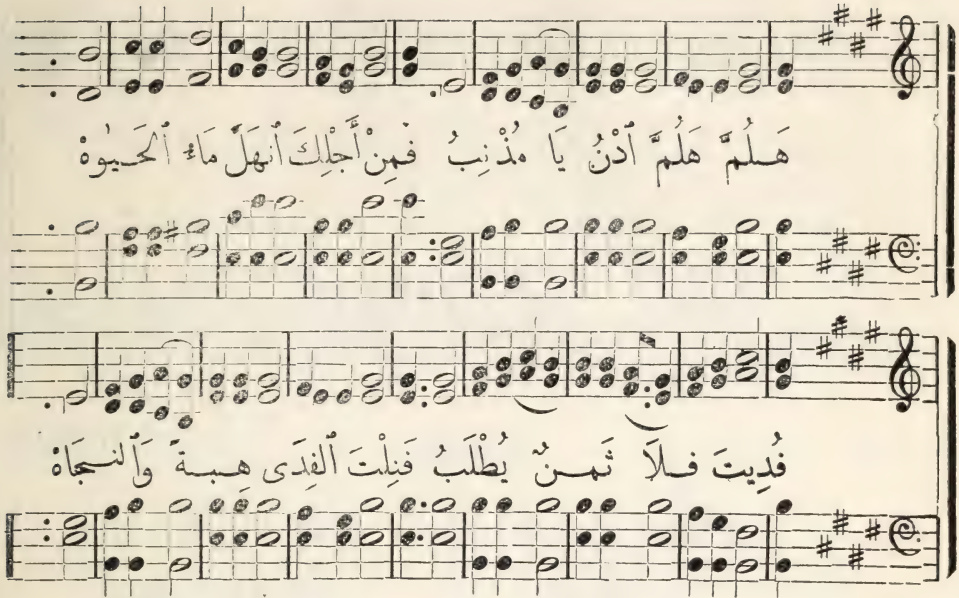 هَلُمَّ هَلُمَّ ٱدْنُ يَا مُذْنِبُ فَمِنْ أَجْلِكَ ٱنْهَلَّ مَاءُ ٱلحَيٰوةْ
فُدِيتَ فَلَا ثَمَنٌ يُطْلَبُ فَنِلْتَ ٱلفِدَى هِبَةً وَٱلنَّجَاةْ